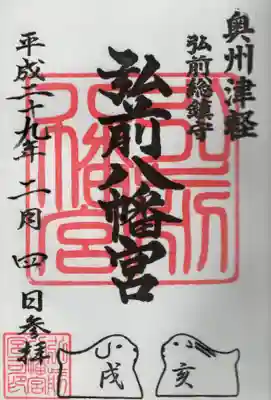 奥州津軽
弘前総鎮守
弘前八幡宮
平成二十九年二月四日参拝
弘前八幡宮
亥
戌